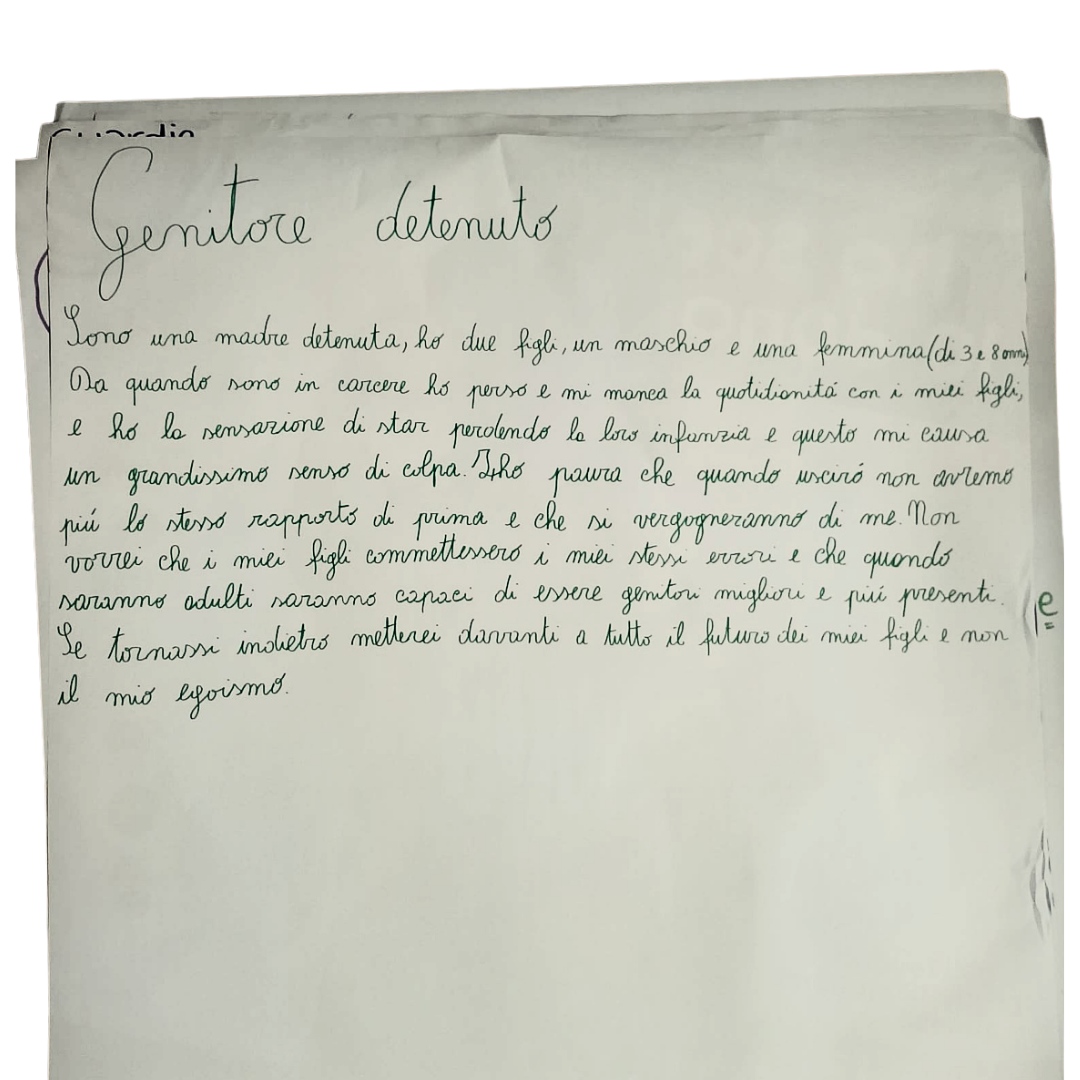 Genitore detenuto
Sono una madre detenuta, ho due figli, un maschio e una femmina (di 3 e 8 anni)
Da quando sono in carcere ho perso e mi manca la quotidianitá con i miei figli,
e ho la sensazione di star perdendo la loro infanzia e questo mi causa
un grandissimo senso di colpa. ho paura che quando usciró non avremo
piú lo stesso rapporto di prima e che si vergogneranno di me. Non
vorrei che i miei figli commettessero i miei stessi errori e che quando
saranno adulti saranno capaci di essere genitori migliori e piú presenti.
Se tornassi indietro metterei davanti a tutto il futuro dei miei figli e non
il mio egoismo.
e